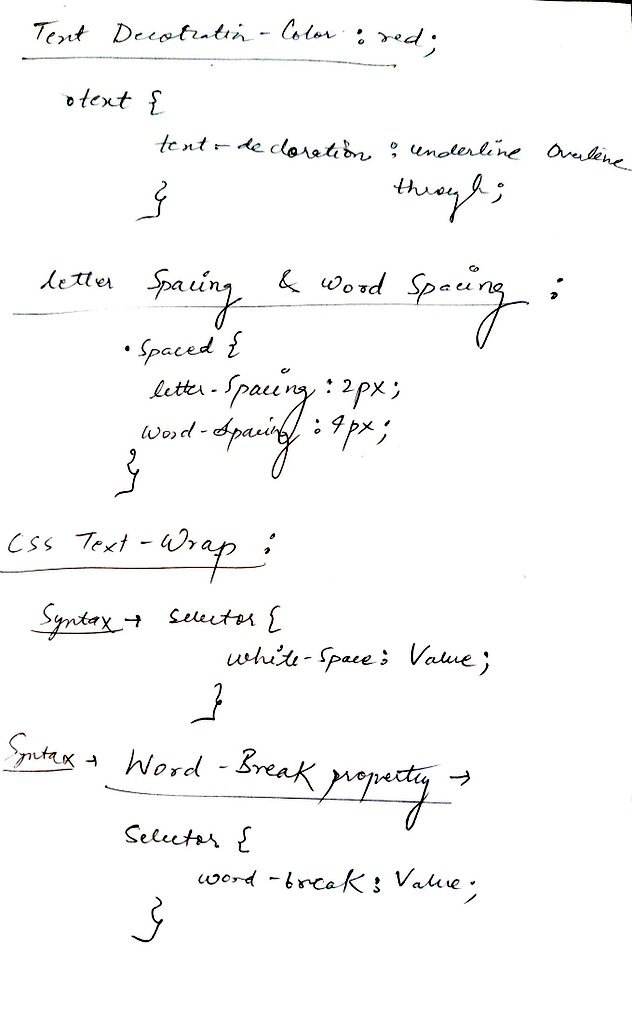 Text Decotratin - Color : red;
.text {
text-decloration : underline overline
through;
}
letter Spacing & Word Spacing :
.Spaced {
letter-Spacing : 2px;
word-Spacing : 4px;
}
CSS Text-Wrap :
Syntax → Selector {
white-Space : Value;
}
Syntax → Word-Break property →
Selector {
word-break : Value;
}